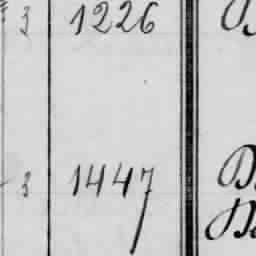 3 1226
3 1447